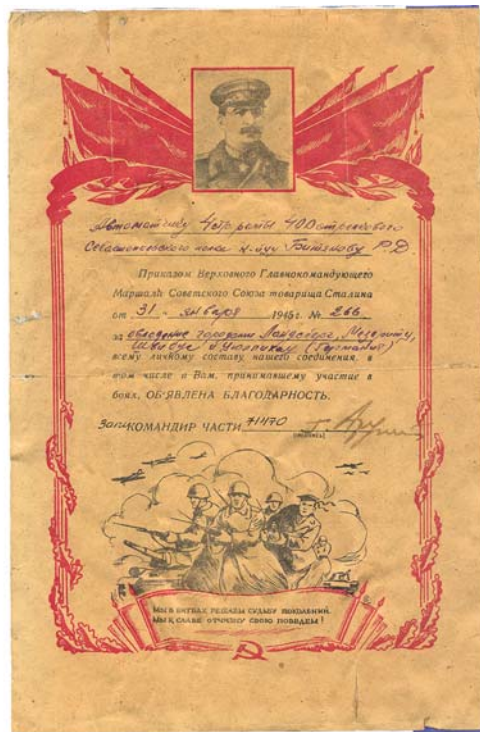 Автоматчику 4 стр роты 400 стрелкового
Севастопольского полка Битякову Р.Д
Приказом Верховного Главнокомандующего
Маршала Советского Союза товарища Сталина
от "31" января 1945 г. № 266
за овладение городами Ландсберг, Мезеритц,
Швибус и (Германия)
всему личному составу нашего соединения, в
том числе и Вам, принимавшему участие в
боях, ОБ'ЯВЛЕНА БЛАГОДАРНОСТЬ.
КОМАНДИР ЧАСТИ 71470
(подпись)
МЫ В БИТВАХ РЕШАЕМ СУДЬБУ ПОКОЛЕНИЙ,
МЫ К СЛАВЕ ОТЧИЗНУ СВОЮ ПОВЕДЕМ!